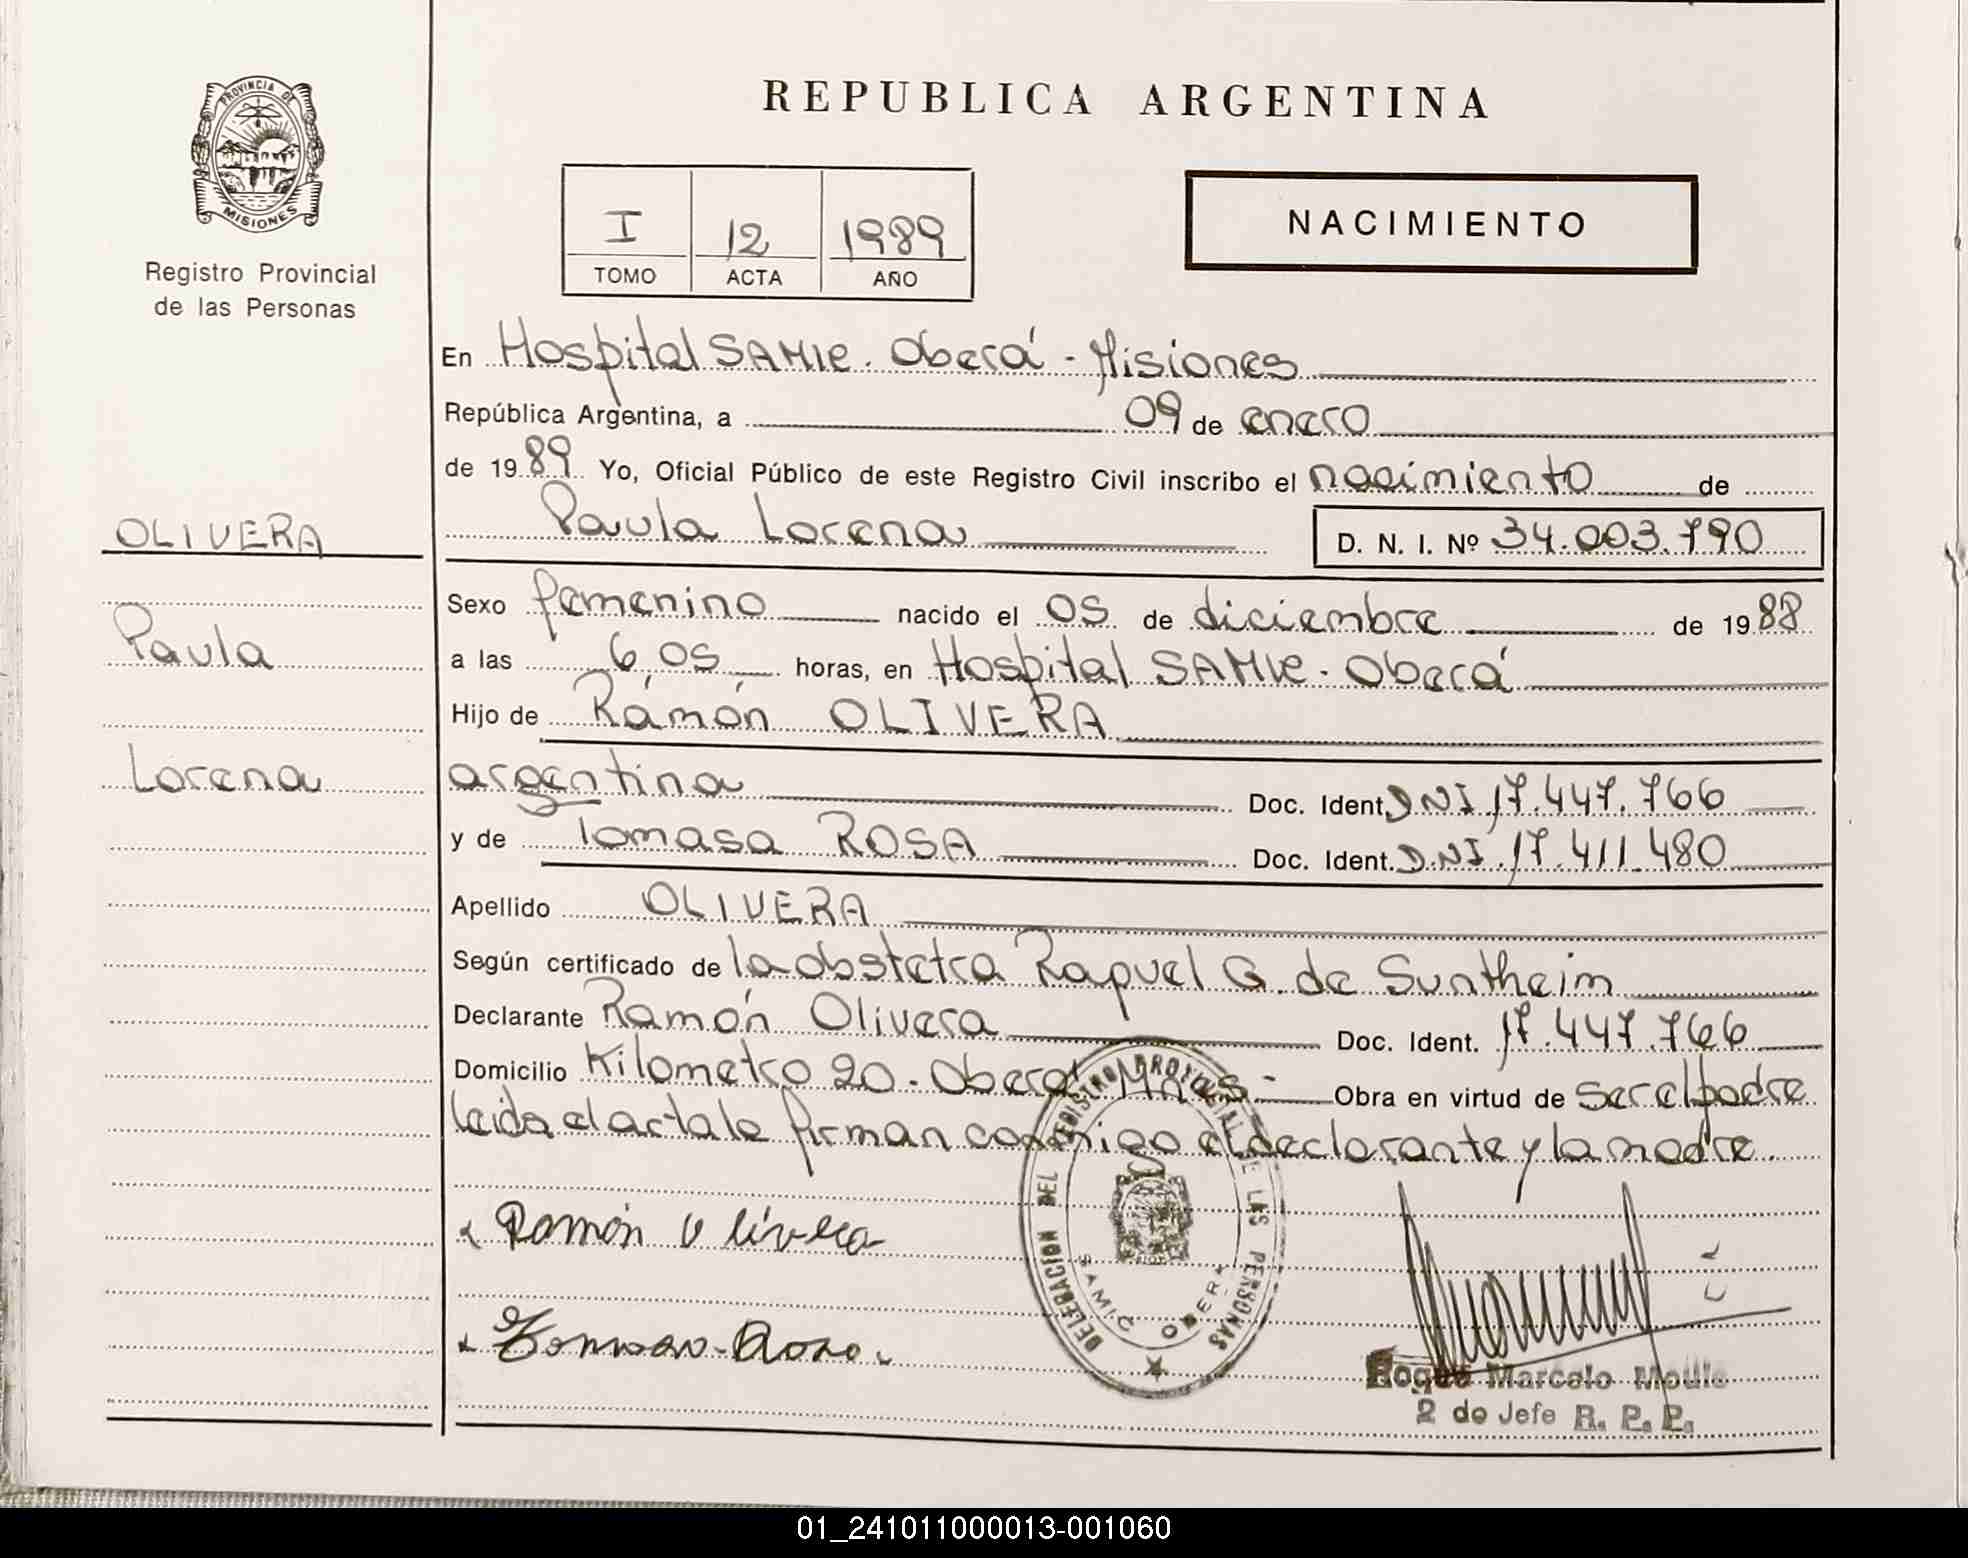 PROVINCIA DE
MISIONES
Registro Provincial
de las Personas
OLIVERA
Paula
Lorena
REPUBLICA ARGENTINA
I 12 1989
TOMO ACTA AÑO
NACIMIENTO
En Hospital SAMIC. Oberá - Misiones
República Argentina, a 09 de enero
de 1989 Yo, Oficial Público de este Registro Civil inscribo el nacimiento de
Paula Lorena D. N. I. Nº 34.003.790
Sexo femenino nacido el 05 de diciembre de 1988
a las 6,05 horas, en Hospital SAMIC. Oberá
Hijo de Ramón OLIVERA
argentina Doc. Ident. DNI 17.447.766
y de Tomasa ROSA Doc. Ident. DNI. 17.411.480
Apellido OLIVERA
Según certificado de la obstetra Raquel G. de Suntheim
Declarante Ramón Olivera Doc. Ident. 17.447.766
Domicilio Kilometro 20. Oberá Mnes - Obra en virtud de ser el padre
leida el acta la firman conmigo el declarante y la madre.
Ramón Olivera
Tomasa Rosa.
DELEGACION DEL REGISTRO PROVINCIAL DE LAS PERSONAS
SAMIC OBERA
Roque Marcelo
2 do Jefe R. P. P.
01_241011000013-001060